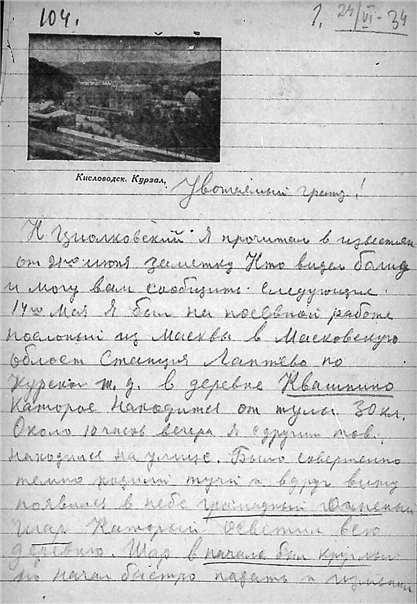 104.
1. 24/VI-34
Кисловодск. Курзал.
Уважаемый гражд!
К Циолковский Я прочитал в известиях
от июня заметку Кто видел болид
и могу вам сообщить следующие
14го Мая Я был на посевной работе
посланый из Масквы в Масковскую
област Станция Лаптево по
Курской ж.д. в деревне Квашнино
Каторое находится от тулы 30 кл.
Около 10 часов вечера Я с другим тов.
находился на улице. Было совершенно
темно тучи и вдруг вижу
появился в небе громадный Огненый
Шар Каторый осветил всю
деревню. Шар в начала был круглый
но начал быстро падать и